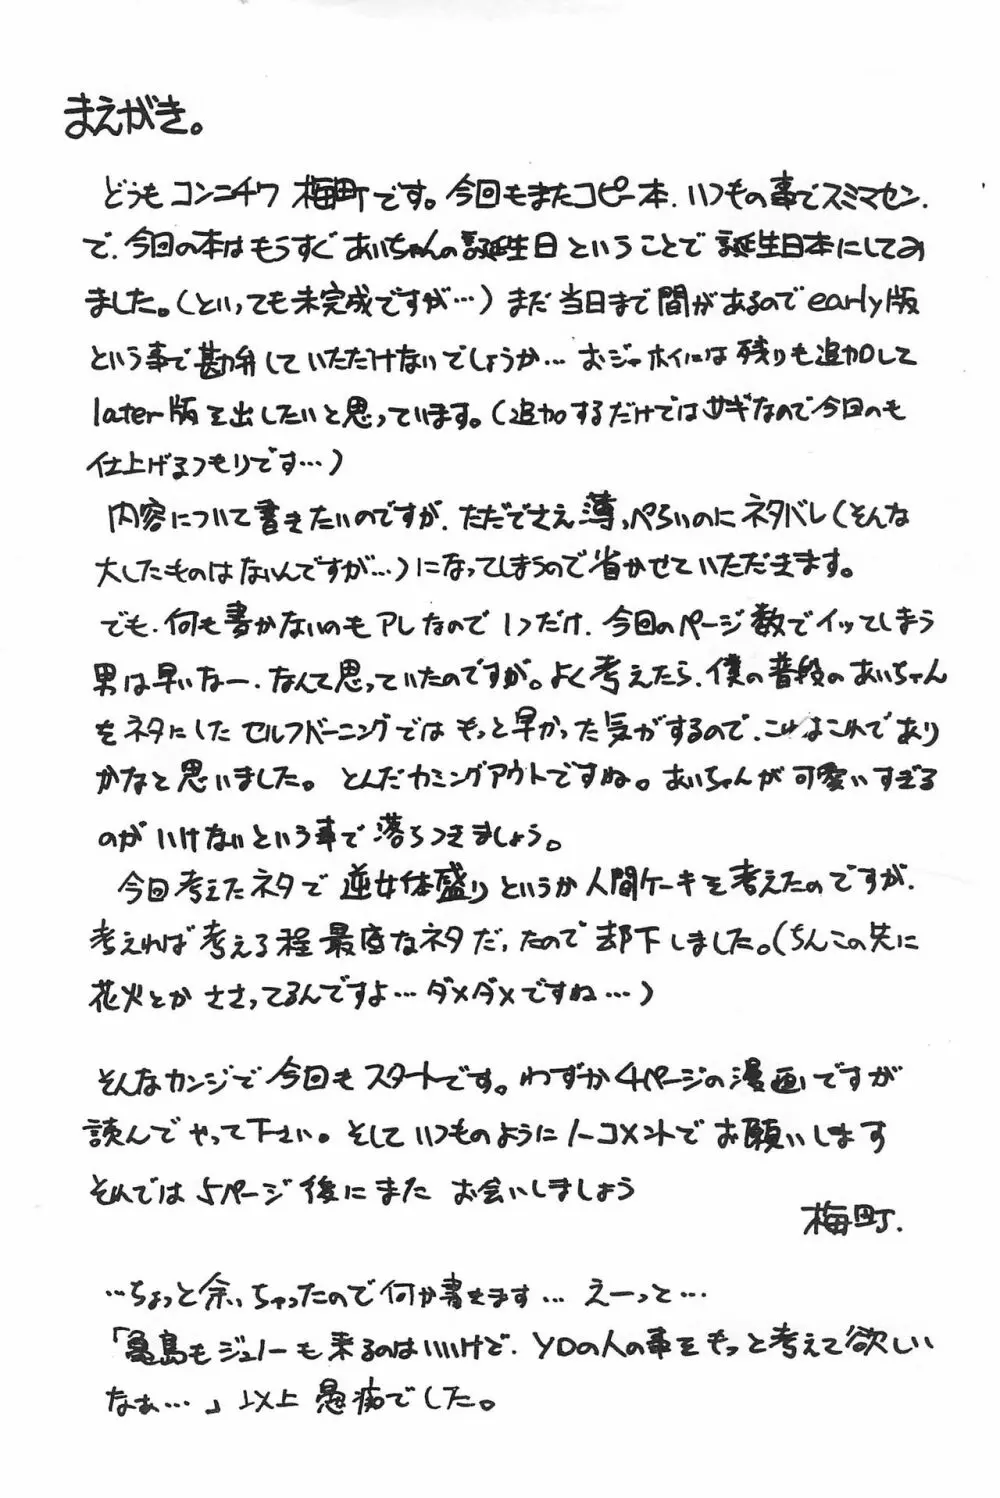 まえがき。
どうもコンニチワ 梅町です。今回もまたコピー本、いつもの事でスミマセン、
で、今回の本はもうすぐあいちゃんの誕生日ということで誕生日本にしてみ
ました。(といっても未完成ですが…)まだ当日まで間があるのでearly版
という事で勘弁していただけないでしょうか… おジャホイには残りも追加して
later版を出したいと思っています。(追加するだけではサギなので今回のも
仕上げるつもりです…)
内容について書きたいのですが、ただでさえ薄っぺらいのにネタバレ(そんな
大したものはないんですが…)になってしまうので省かせていただきます。
でも、何も書かないのもアレなので1つだけ、今回のページ数でイッてしまう
男は早いなー、なんて思っていたのですが。よく考えたら、僕の普段のあいちゃん
をネタにしたセルフバーニングではもっと早かった気がするので、これはこれであり
かなと思いました。とんだカミングアウトですね。あいちゃんが可愛いすぎる
のがいけないという事で落ちつきましょう。
今回考えたネタで逆女体盛りというか人間ケーキを考えたのですが、
考えれば考える程最低なネタだったので却下しました。(ちんこの先に
花火とかささってるんですよ…ダメダメですね…)
そんなカンジで今回もスタートです。わずか4ページの漫画ですが
読んでやって下さい。そしていつものようにノーコメントでお願いします
それでは5ページ後にまたお会いしましょう
梅町.
…ちょっと余っちゃったので何か書きます…えーっと…
「亀島もジュノーも来るのはいいけど、YDの人の事をもっと考えて欲しい
なぁ…」以上愚痴でした。